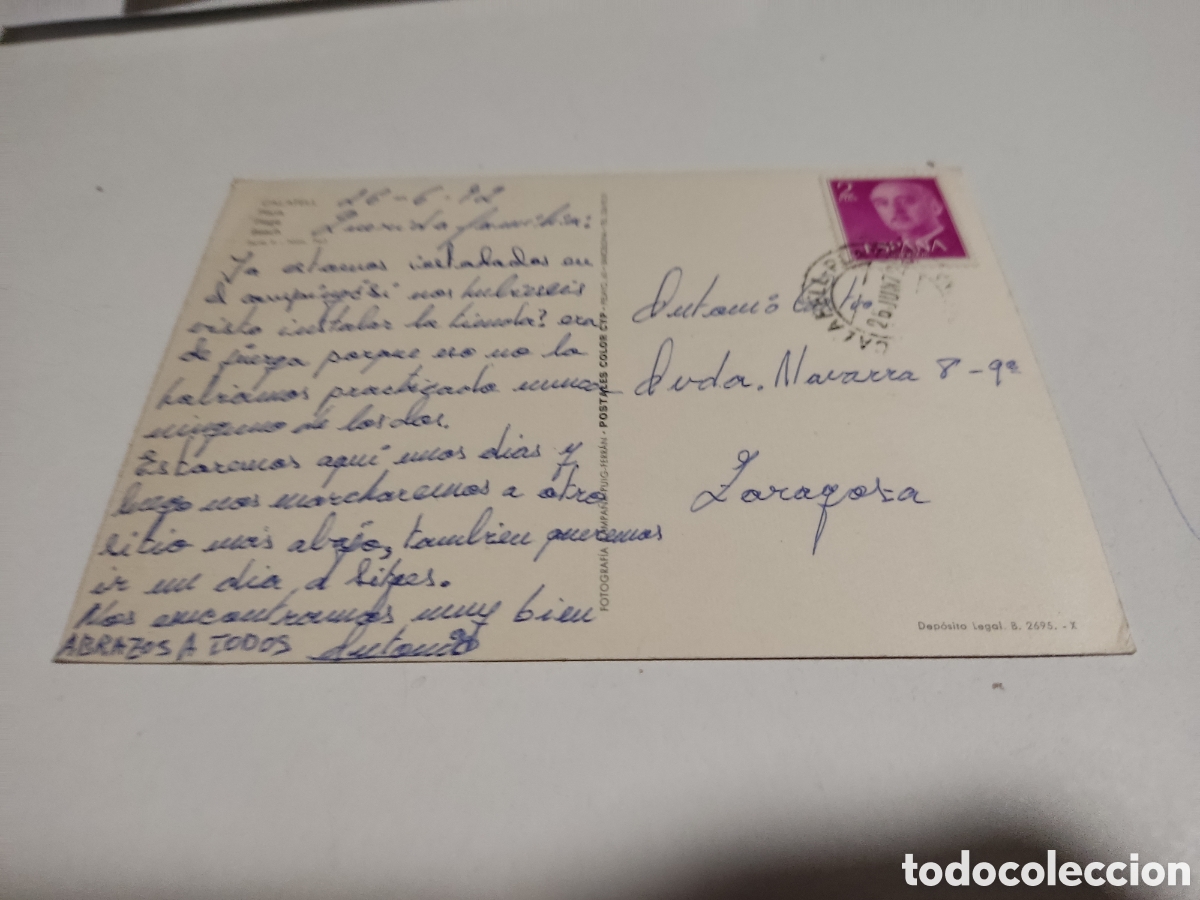 CALAFELL
26-6-72
Querida familia:
Ya estamos instalados en
el camping ¡si nos hubieseis
visto instalar la tienda? era
de juerga porque eso no lo
habiamos practicado nunca
ninguno de los dos.
Estaremos aquí unos dias y
luego nos marcharemos a otro
sitio mas abajo, tambien queremos
ir un dia a Sitges.
Nos encontramos muy bien
ABRAZOS A TODOS Antonio
FOTOGRAFÍA CAMPAÑÁ PUIG-FERRÁN - POSTALES COLOR CYP
2
PTS
ESPAÑA
CALAFELL
26 JUN 72
Antonio
Avda. Navarra 8 - 9º
Zaragoza
Depósito Legal. B. 2695. - X
todocoleccion